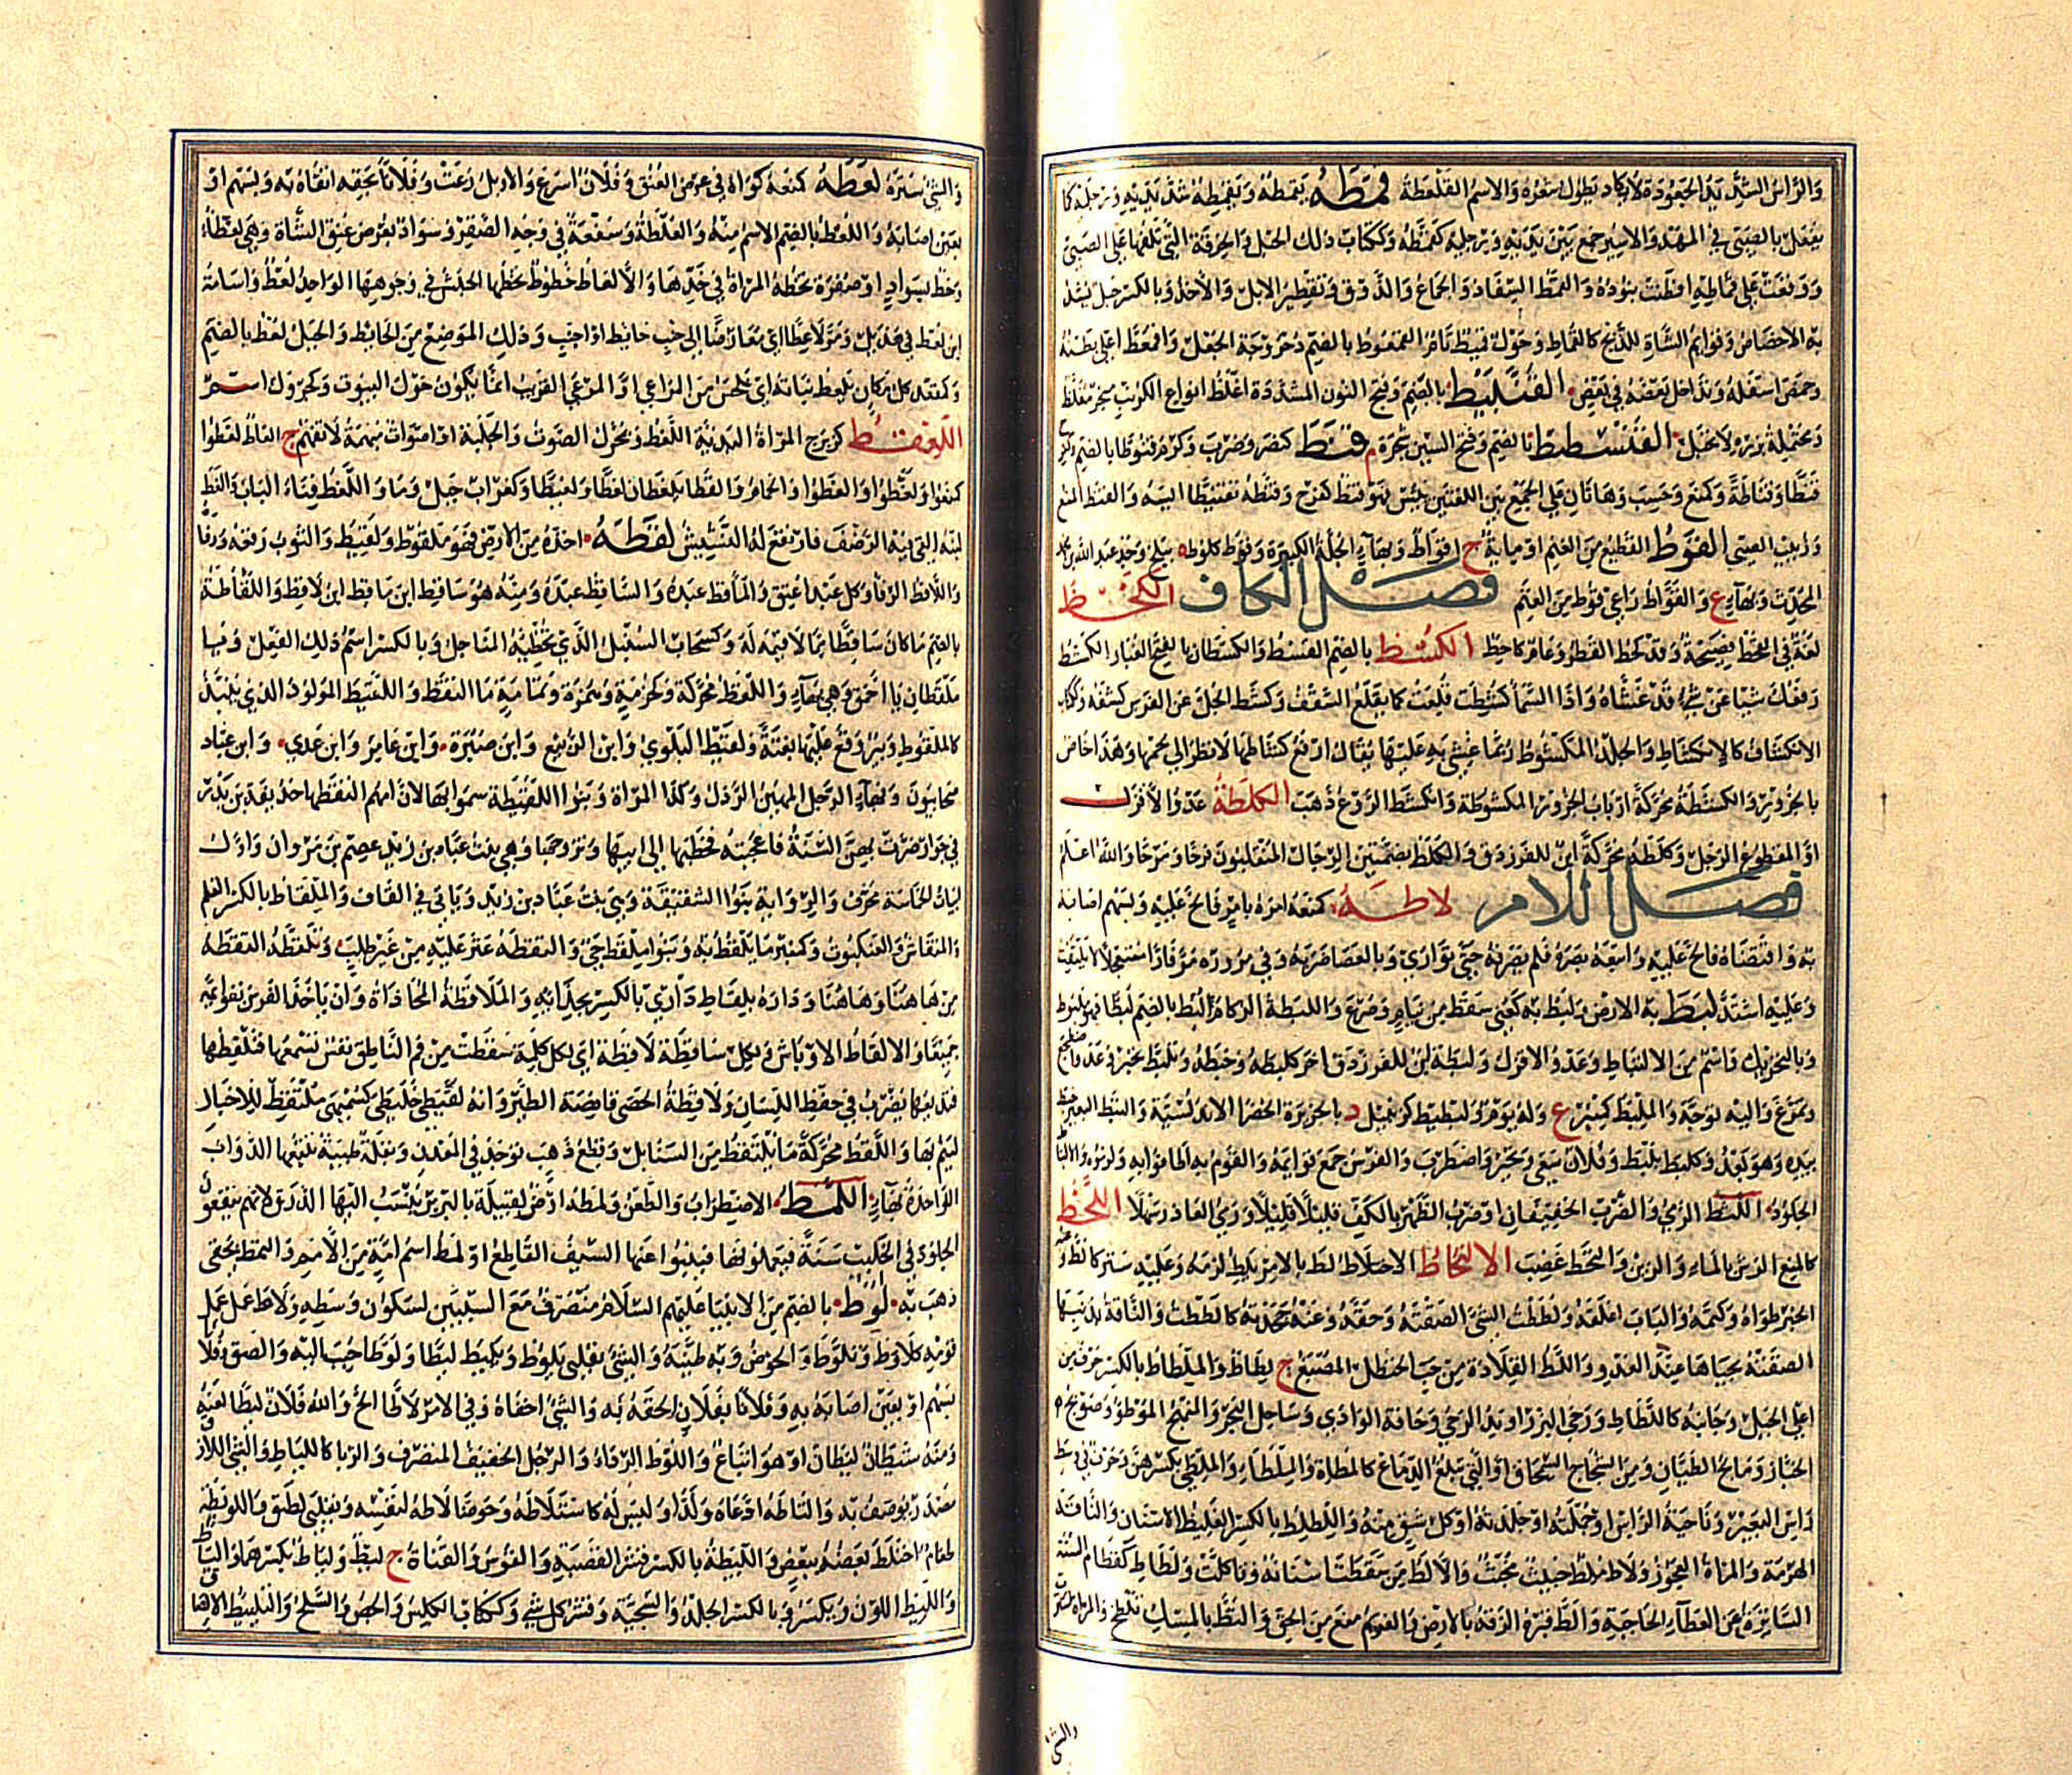 والراس الشديد الجعودة لا يكاد يطول شعره والاسم القلعطة قمطه يقمطه ويقمطه شد يديه ورجليه كما
يفعل بالصبي في المهد والاسير جمع بين يديه ورجليه كقمطه وككتاب ذلك الحبل والخرقة التي تلفها على الصبي
ووقعت على قماطه فطنت بنوده والقمط السفاد والجماع والذوق وتقطير الابل والاخذ وبالكسر حبل يشد
به الاخصاص وقوائم الشاة للذبح كالقماط وحول قميط تام القمعوط بالضم دحروجة الجعل واقمعط اعلى بطنه
وخمص اسفله وتداخل بعضه في بعض القنبيط بالضم وفتح النون المشددة اغلظ انواع الكرنب مبخر مغلظ
القنسطيط بالضم وفتح السين شجرة م قنط كنصر وضرب وكرم قنوطا بالضم وكفرح
قنطا وقناطة وكمنع وحسب وهاتان على الجمع بين اللغتين يئس فهو قنط كفرح وقنطه تقنيطا ايسه والقنط المنع
وزبيب الصبي القوط القطيع من الغنم او مائة ج اقواط وبهاء الجلة الكبيرة وقوط كلوط ببلخ وجد عبد الله بن محمد
المحدث وبهاء ع والقواط راعي قوط من الغنم فصل الكاف الكحط
لغة في القحط فصيحة وقد كحط القطر وعام كاحط الكسط بالضم القسط والكسطان بالفتح الغبار الكشط
رفعك شيئا عن شيء قد غشاه واذا السماء كشطت قلعت كما يقلع السقف وكشط الجل عن الفرس كشفه وككتاب
الانكشاف كالانكشاط والجلد المكشوط ربما غشي به عليها يقال ارفع كشاطها لانظر الى لحمها وهذا خاص
بالجزور والكشطة محركة ارباب الجزور المكشوطة وانكشط الروع ذهب الكلطة عدو الاقزل
او المقطوع الرجل وكلطة محركة ابن للفرزدق والكلط بضمتين الرجال المتقلبون فرحا ومرحا والله اعلم
فصل اللام لاطه كمنعه امره بامر فالح عليه وبسهم اصابه
به واقتضاه فالح عليه واتبعه بصره فلم يصرفه حتى توارى وبالعصا ضربه وفي مروره مر فارا مستعجلا لا يلتفت
وعليه اشتد لبط به الارض ولبط به كعني سقط من قيام وصرع واللبطة الزكام لبط بالضم لبطا فهو ملبوط
وبالتحريك اسم من الالتباط وعدو الاقزل ولبطة ابن للفرزدق اخو كلطة وخبطة وتلبط تحير وعدا واضطجع
وتمرغ واليه توجه والملبط كمنبر ع وله يوم ولبطيط كزنجبيل د بالجزيرة الخضراء الاندلسية والتبط البعير خبط
بيده وهو يعدو كلبط يلبط وفلان سعى وتحير واضطرب والفرس جمع قوائمه والقوم به اطافوا به ولزموه والالباط
الجلود اللثط الرمي والضرب الخفيفان او ضرب الظهر بالكف قليلا قليلا ورمي العاذر سهلا اللحط
كالمنع الرش بالماء والزبن والتحط غضب الالتخاط الاختلاط لط بالامر يلط لزمه وعليه ستر كالط
الخبر طواه وكتمه والباب اغلقه ولططت الشيء الصقته وحقه وعنه جحدته كالططت والناقة بذنبها
الصقته بحيائها عند العدو واللط القلادة من حب الحنظل المصبغ ج لطاط والملطاط بالكسر حرف من
اعلى الجبل وجانبه كاللطاط ورحى البزر او يد الرحى وحافة الوادي وساحل البحر والمنهج الموطوء وصوبج
الخباز ومالج الطيان ومن الشجاج السمحاق او التي تبلغ الدماغ كالملطاة والملطاء والملطى بكسرهن وحرف في وسط
راس البعير وناحية الراس او جملته او جلدته او كل شق منه واللطلط بالكسر الغليظ الاسنان والناقة
الهرمة والمراة العجوز ولاط ملط خبيث مخبث والالط من سقطت اسنانه وتاكلت ولطاط كقطام السنة
الساترة عن العطاء الحاجبة والط قبره الزقه بالارض والغريم منع من الحق والتط بالمسك تلطخ والمراة استترت
والشيء
والشيء ستره لعطه كمنعه كواه في عرض العنق وفلان اسرع والابل رعت وفلانا بحقه اتقاه به وبسهم او
بعين اصابه واللعط بالضم الاسم منه والعلطة وسفعة في وجه الصقر وسواد بعرض عنق الشاة وهي لعطاء
وخط بسواد او صفرة تخطه المراة في خدها والالعاط خطوط تخطها الحبش في وجوهها الواحد لعط واسامة
ابن لعط في هذيل ومر لاعطا اي معارضا الى جنب حائط او جنب وذلك الموضع من الحائط والجبل لعط بالضم
وكمقعد كل مكان يلعط نباته اي يلحس من المراعي او المرعى القريب انما يكون حول البيوت وكجرول اسم
اللعقط كزبرج المراة البذية اللغط ويحرك الصوت والجلبة او اصوات مبهمة لا تفهم ج الغاط لغطوا
كمنعوا ولغطوا والغطوا والحمام والقطا يلغطان لغطا ولغيطا وكغراب جبل وماء واللغط فناء الباب والغط
لبنه القى فيه الرضف فارتفع له النشيش لقطه اخذه من الارض فهو ملقوط ولقيط والثوب رقعه ورفاه
واللاقط الرفاء وكل عبد اعتق والماقط عبده والساقط عبده ومنه هو ساقط ابن ماقط ابن لاقط واللقاطة
بالضم ما كان ساقطا مما لا قيمة له وكسحاب السنبل الذي تخطئه المناجل وبالكسر اسم ذلك الفعل ويا
ملقطان يا احمق وهي بهاء واللقط محركة وكحزمة وهمزة وثمامة ما التقط واللقيط المولود الذي ينبذ
كالملقوط وبئر وقع عليها بغتة ولقيط البلوي وابن الربيع وابن صبرة وابن عامر وابن عدي وابن عباد
صحابيون وبهاء الرجل المهين الرذل وكذا المراة وبنوا اللقيطة سموا بها لان امهم التقطها حذيفة بن بدر
في جوار ضرت بهن السنة فاعجبته فخطبها الى ابيها وتزوجها وهي بنت عصم بن مروان واول
ابيات الحماسة محرف والرواية بنوا الشقيقة وهي بنت عباد بن زيد وياتي في القاف والملقاط بالكسر القلم
والمنقاش والعنكبوت وكمنبر ما يلقط به وبنوا ملقط حي والتقطه عثر عليه من غير طلب وتلقطه التقطه
من هاهنا وهاهنا وداره بلقاط داري بالكسر بحذائه والملاقطة المحاذاة وان ياخذ الفرس بقوائمه
جميعا والالقاط الاوباش ولكل ساقطة لاقطة اي لكل كلمة سقطت من فم الناطق نفس تسمعها فتلقطها
فتذيعها يضرب في حفظ اللسان ولاقطة الحصى قانصة الطير وانه لقيطى خليطى كسميهى ملتقط للاخبار
لينم بها واللقط محركة ما يلتقط من السنابل وقطع ذهب توجد في المعدن وبقلة طيبة تتبعها الدواب
الواحدة بهاء اللمط الاضطراب والطعن ولمطة ارض لقبيلة بالبربر ينسب اليها الدرق لانهم ينقعون
الجلود في الحليب سنة فيعملونها فينبوا عنها السيف القاطع او لمط اسم امة من الامم والتمط بحقي
ذهب به لوط بالضم من الانبياء عليهم السلام منصرف مع السببين لسكون وسطه ولاط عمل عمل
قومه كلاوط وتلوط والحوض وبه طينه والشيء بقلبي يلوط ويليط ليطا ولوطا حبب اليه والصق وفلانا
بسهم او بعين اصابه به وفلانا بفلان الحقه به والشيء اخفاه وفي الامر لاطا الح والله فلان ليطا لعنه
ومنه شيطان ليطان او هو اتباع واللوط الرداء والرجل الخفيف المتصرف والربا كاللياط والشيء اللازق
مصدر يوصف به والتاطه ادعاه ولدا وليس له كاستلاطه وحوضا لاطه لنفسه وبقلبي لصق واللويطة
طعام اختلط بعضه ببعض والليطة بالكسر قشر القصبة والقوس والقناة ج ليط ولياط بكسرهما والياط
والليط اللون ويكسر وبالكسر الجلد والسجية وقشر كل شيء وككتاب الكلس والجص والسلح والتلييط الالصاق